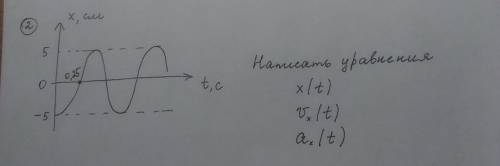 2
x, см
5
0,25
0
t, с
-5
Написать уравнения
x(t)
vₓ(t)
aₓ(t)